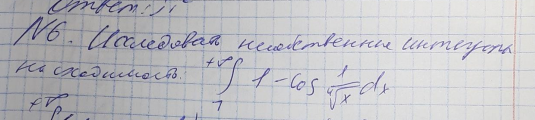 Ответ:
N6. Исследовать несобственные интегралы
на сходимость
+∞ ∫ 1 1 - cos 1/∜x dx
+∞